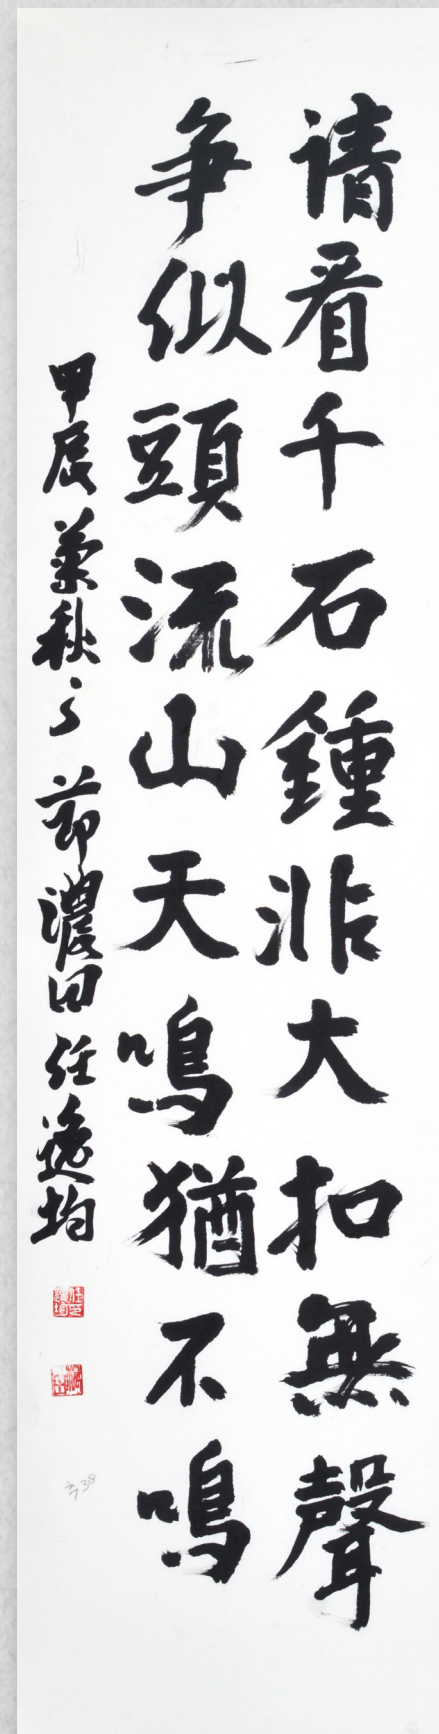 请看千石鍾非大扣無聲
争似頭流山天鳴猶不鳴
甲辰菊秋之節濃田任逸均